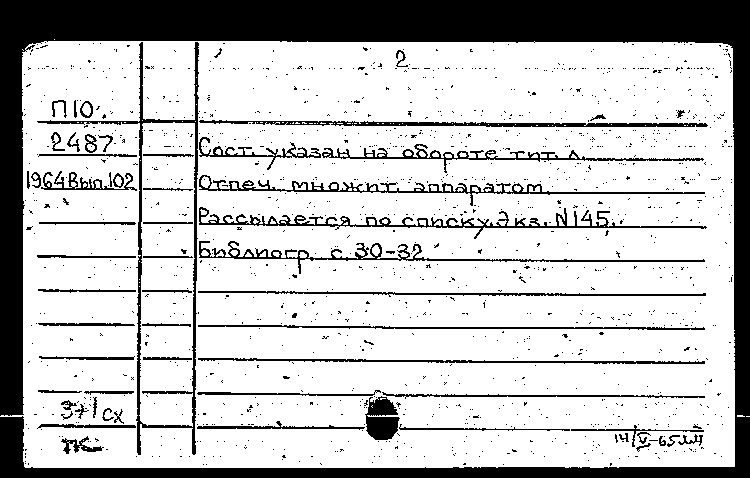 2
П10.
2487 Сост. указан на обороте тит. л.
1964 Вып. 102 Отпеч. множит. аппаратом.
Рассылается по списку. Экз. N145.
Библиогр. с. 30-32
37/1 сх
14/V-65